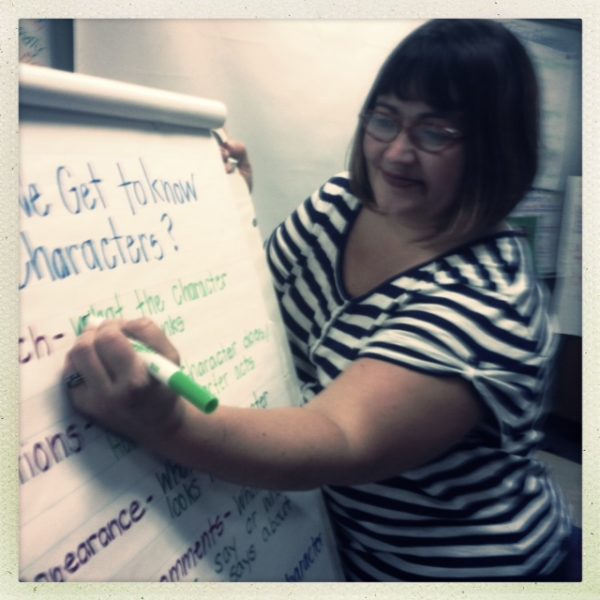 We Get to know
Characters?
ch- What the character
nks
Character does/
acts
ions-
pearance-
looks
mments-
say or
says about
character